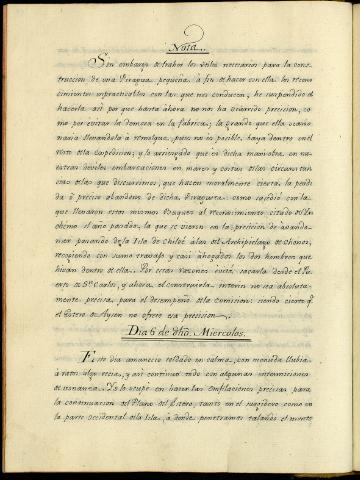 Nota.
Sin embargo de traher los utiles necesarios para la cons-
truccion de una Piragua pequeña, à fin de hacer con ella los recono-
cimientos impracticables con las que nos conducen; he suspendido el
hacerla, asi por que hasta ahora no nos ha ocurrido precision, co-
mo por evitar la demora en la fabrica, la grande que ella ocasio-
naria llevandola à remolque, pues no es posible, haya dentro en el
resto de la Expedicion; y lo arriesgado que es dicha maniobra, en nu-
estras deviles embarcaciones en mares y costas de las circunstan-
cias de las que discurrimos, que hacen moralmente cierta la perdi-
da ò preciso abandono de dicha Piragua: como sucedió con la
que llevaron estos mismos Buques al reconocimiento citado del
año pasado, la que se vieron en la precision de abando-
nar pasando de la Isla de Chiloé à las del Archipielago de Chonos,
recogiendo con sumo travajo y casi ahogados los dos hombres que
hivan dentro de ella. Por estas razones evité sacarla desde el Pu-
erto de Sn. Carlos, y ahora el construirla, interin no sea absoluta-
mente precisa, para el desempeño de la Comision; siendo cierto q.
el Estero de Aysen no ofrece esa precision.
Dia 6 de dho. Miercoles.
Este dia amanecio toldado en calma, con menuda llubia
à ratos algo recia, y asi continuó todo con algunas intermisiones
de ventana. Yo lo ocupé en hacer las enfilaciones precisas para
la continuacion del Plano del Estero, tanto en el surgidero como en
la parte occidental de la Isla, à donde penetramos talando el monte